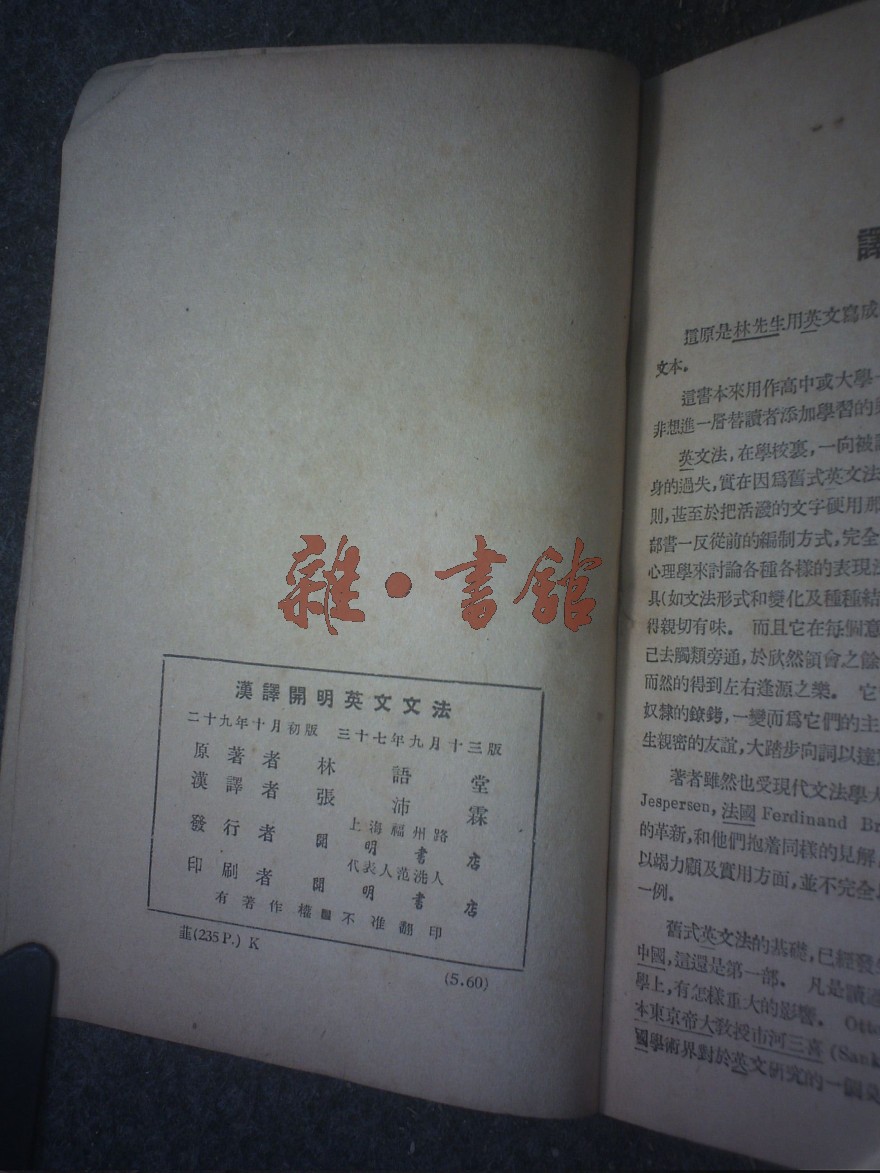 雜·書舘
漢譯開明英文文法
二十九年十月初版 三十七年九月十三版
原著者 林語堂
漢譯者 張沛霖
發行者 開明書店
上海福州路
代表人范洗人
印刷者 開明書店
有著作權■不准翻印
(235 P.) K
(5.60)
譯
這原是林先生用英文寫成
文本。
這書本來用作高中或大學
非想進一層替讀者添加學習的
英文法,在學校裏,一向被
身的過失,實在因爲舊式英文法
則,甚至於把活潑的文字硬用那
部書一反從前的編制方式,完全
心理學來討論各種各樣的表現法
具(如文法形式和變化及種種結
得親切有味。 而且它在每個意
己去觸類旁通,於欣然領會之餘
而然的得到左右逢源之樂。 它
奴隸的鐐銬,一變而爲它們的主
生親密的友誼,大踏步向詞以達
著者雖然也受現代文法學大
Jespersen, 法國 Ferdinand Br
的革新,和他們抱着同樣的見解
以竭力顧及實用方面,並不完全
一例。
舊式英文法的基礎,已經發生
中國,這還是第一部。 凡是讀過
學上,有怎樣重大的影響。 Otto
本東京帝大教授市河三喜 (Sank
國學術界對於英文研究的一個